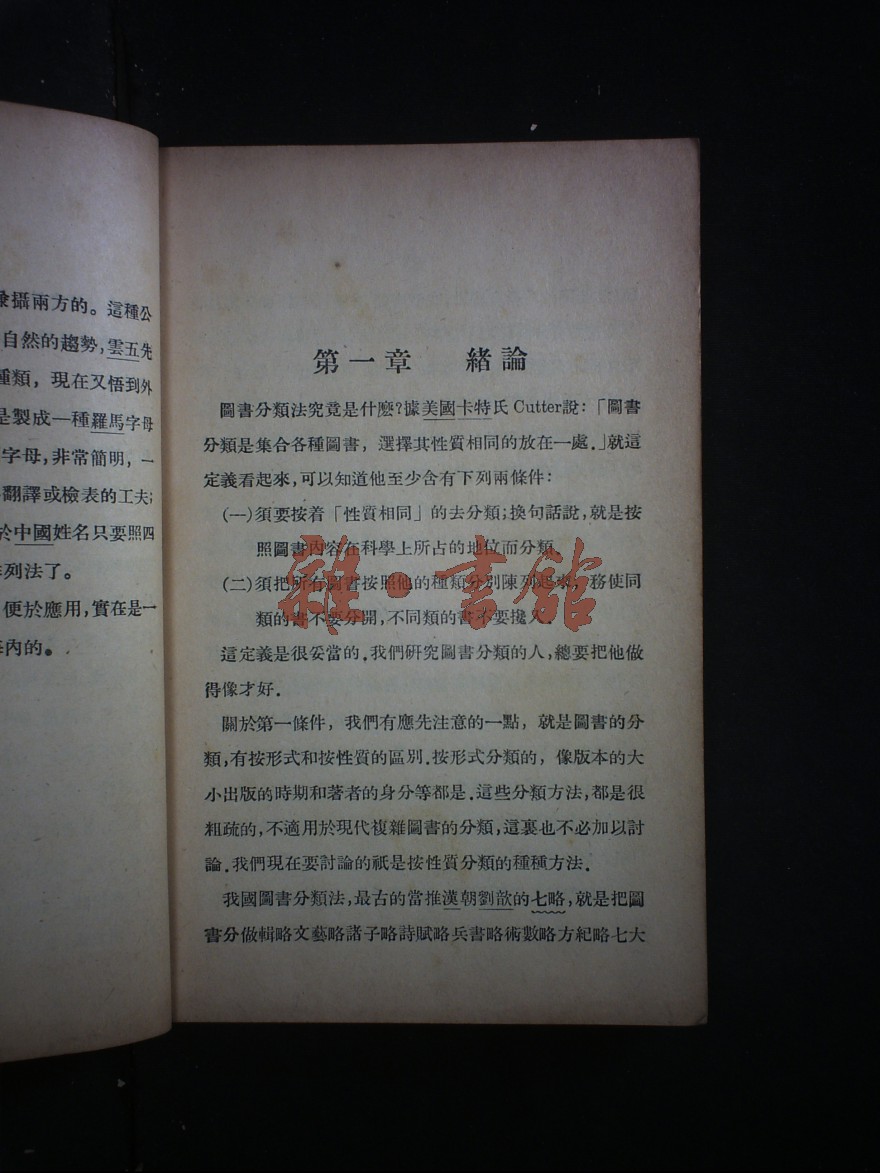 兼攝兩方的。這種公
自然的趨勢,雲五先
種類，現在又悟到外
是製成一種羅馬字母
字母,非常簡明，一
翻譯或檢表的工夫;
於中國姓名只要照四
列法了。
便於應用,實在是一
內的。
第一章　緒論
圖書分類法究竟是什麽?據美國卡特氏Cutter說：「圖書
分類是集合各種圖書，選擇其性質相同的放在一處.」就這
定義看起來,可以知道他至少含有下列兩條件：
(一)須要按着「性質相同」的去分類;換句話說，就是按
照圖書內容在科學上所占的地位而分類、
(二)須把所有圖書按照他的種類分別陳列起來，務使同
類的書不要分開,不同類的書不要攙入.
這定義是很妥當的.我們研究圖書分類的人,總要把他做
得像才好.
關於第一條件，我們有應先注意的一點，就是圖書的分
類,有按形式和按性質的區別.按形式分類的，像版本的大
小出版的時期和著者的身分等都是.這些分類方法,都是很
粗疏的,不適用於現代複雜圖書的分類,這裏也不必加以討
論.我們現在要討論的祇是按性質分類的種種方法.
我國圖書分類法,最古的當推漢朝劉歆的七略,就是把圖
書分做輯略文藝略諸子略詩賦略兵書略術數略方紀略七大
雜·書館